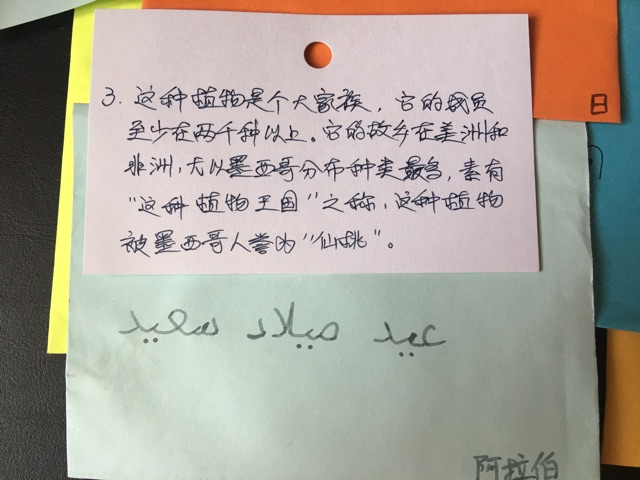 3. 这种植物是个大家族，它的成员
至少在两千种以上。它的故乡在美洲和
非洲，尤以墨西哥分布种类最多，素有
“这种植物王国”之称，这种植物
被墨西哥人誉为“仙桃”。
日
عيد ميلاد سعيد
阿拉伯